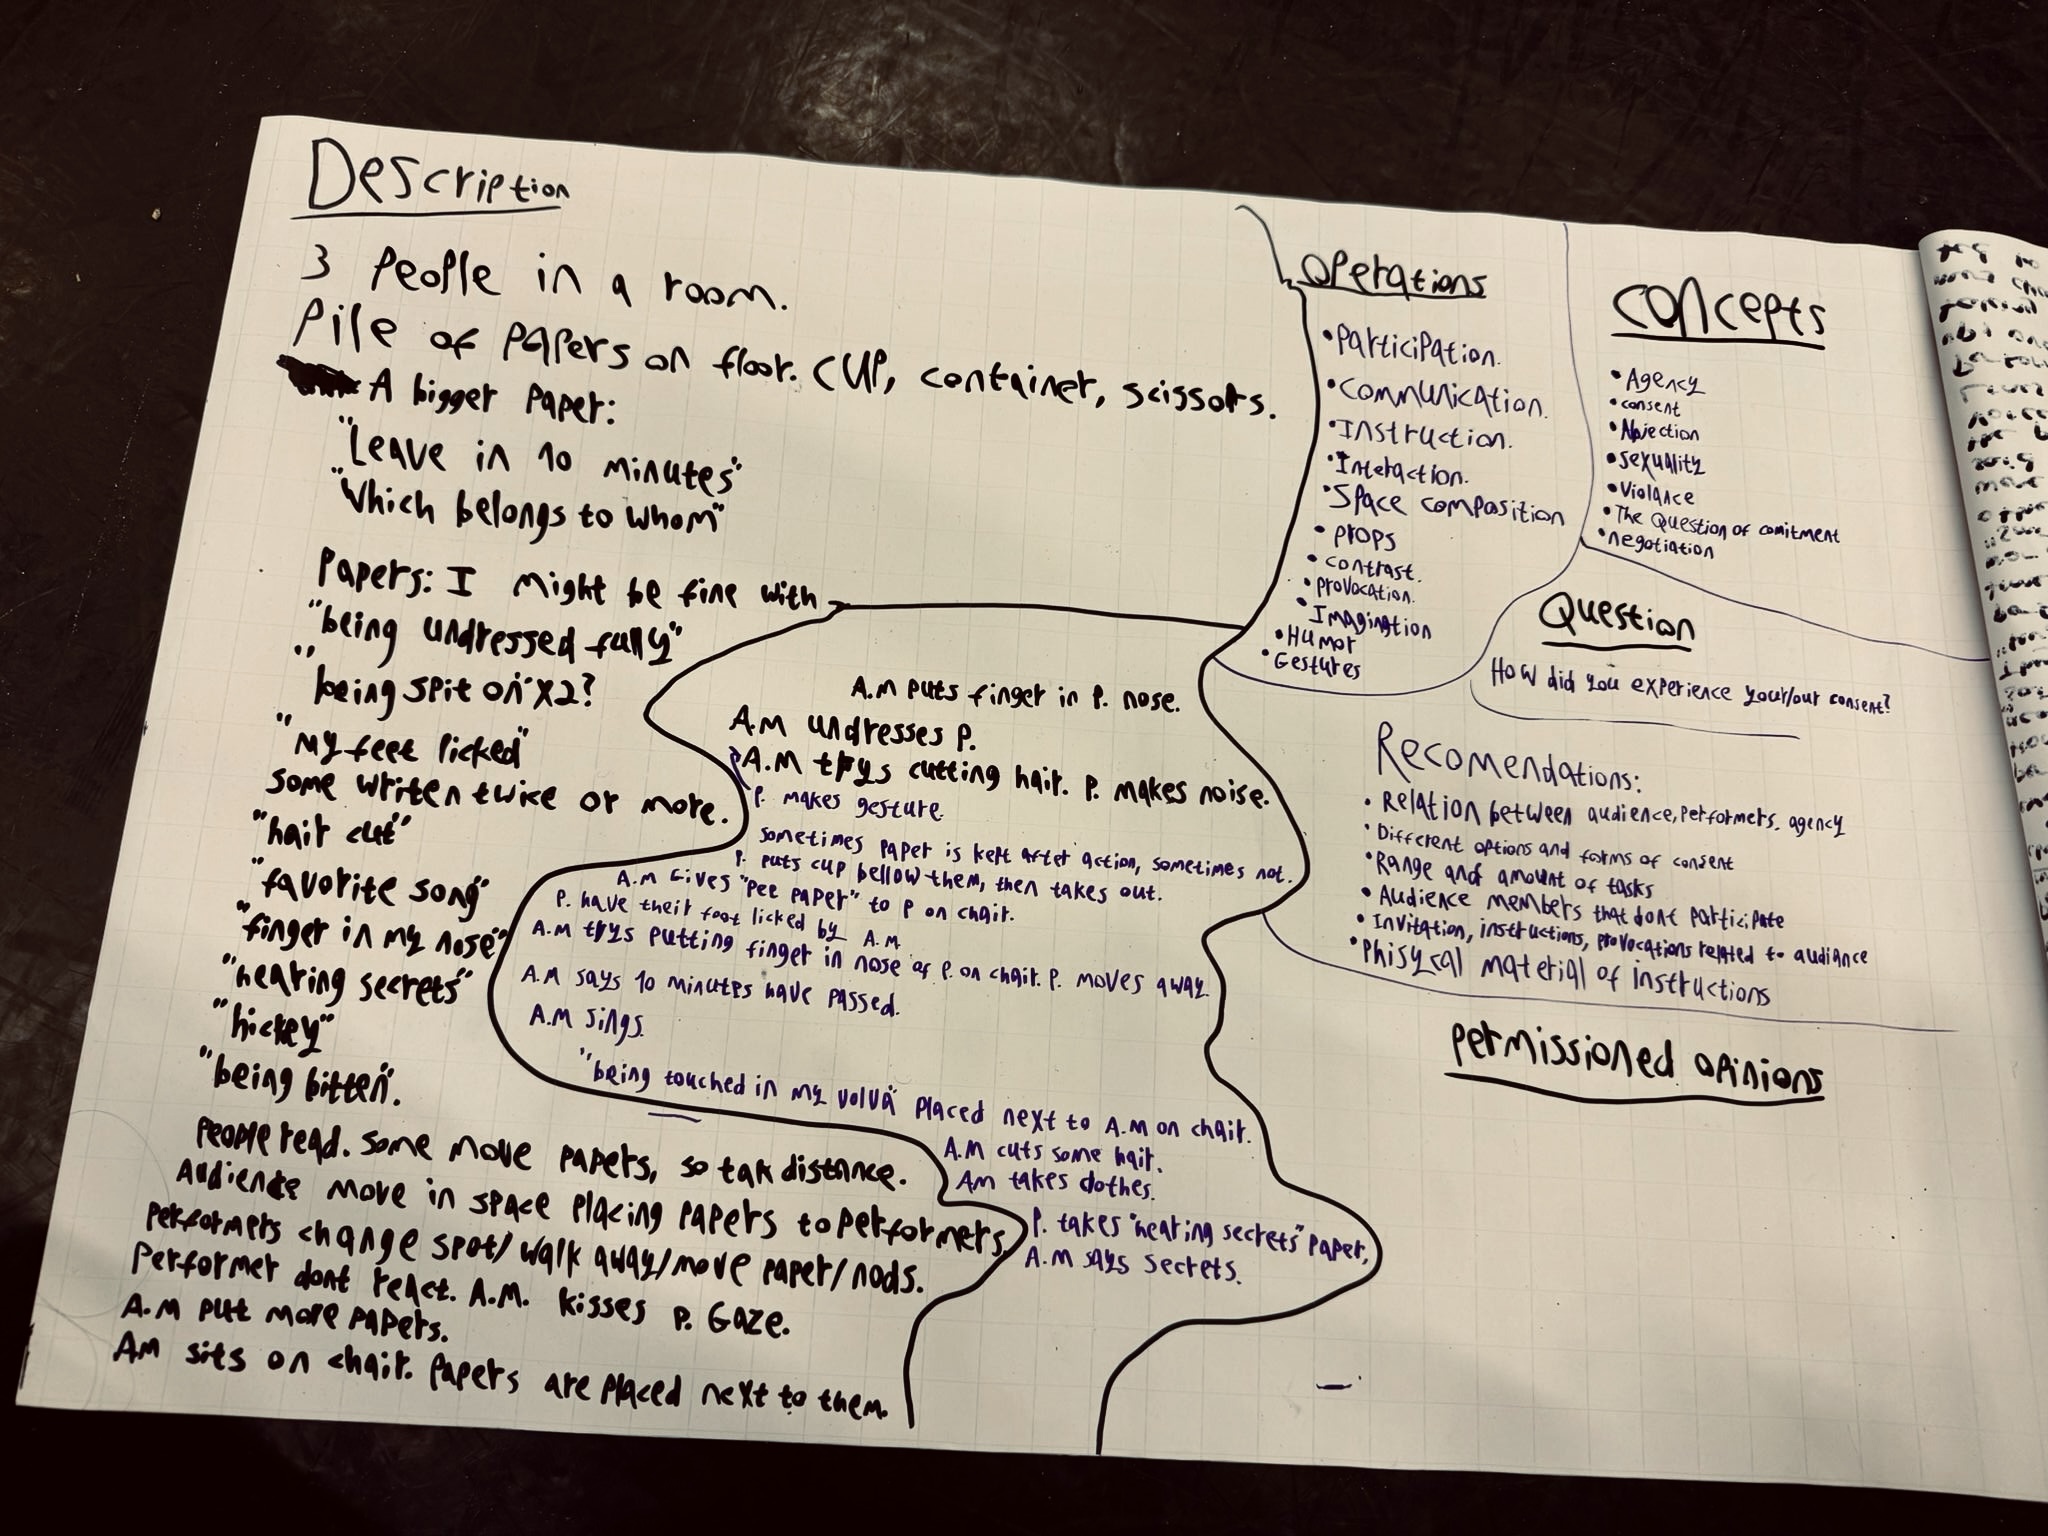 Description
3 People in a room.
Pile of papers on floor. Cup, container, scissors.
A bigger paper:
"Leave in 10 minutes"
"Which belongs to whom"
Papers: I might be fine with
"being undressed fully"
"being spit on" x2?
"my feet licked"
some writen twice or more.
"hair cut"
"favorite song"
"finger in my nose"
"hearing secrets"
"hickey"
"being bitten".
People read. Some move papers, so tak distance.
Audience move in space placing papers to performers.
Performers change spot/walk away/move paper/nods.
Performer dont react. A.M. kisses P. Gaze.
A.M put more papers.
AM sits on chair. Papers are placed next to them.
A.M puts finger in P. nose.
A.M undresses P.
A.M trys cutting hair. P. makes noise.
P. makes gesture.
sometimes paper is kept after action, sometimes not.
P. puts cup bellow them, then takes out.
A.M gives "pee paper" to P on chair.
P. have their foot licked by A.M
A.M trys putting finger in nose of P. on chair. P. moves away.
A.M says 10 minutes have passed.
A.M sings.
"being touched in my volva" placed next to A.M on chair.
A.M cuts some hair.
AM takes clothes.
P. takes "hearing secrets" paper,
A.M says secrets.
Operations
• Participation.
• Communication.
• Instruction.
• Interaction.
• Space composition
• props
• contrast.
• provocation.
• Imagination
• Humor
• Gestures
Concepts
• Agency
• consent
• Abjection
• sexuality
• Violance
• The Question of comitment
• negotiation
Question
How did you experience your/our consent?
Recomendations:
• Relation between audience, performers, agency
• Different options and forms of consent
• Range and amount of tasks
• Audience members that dont participate
• Invitation, instructions, provocations related to audiance
• Phisycal material of instructions
Permissioned opinions